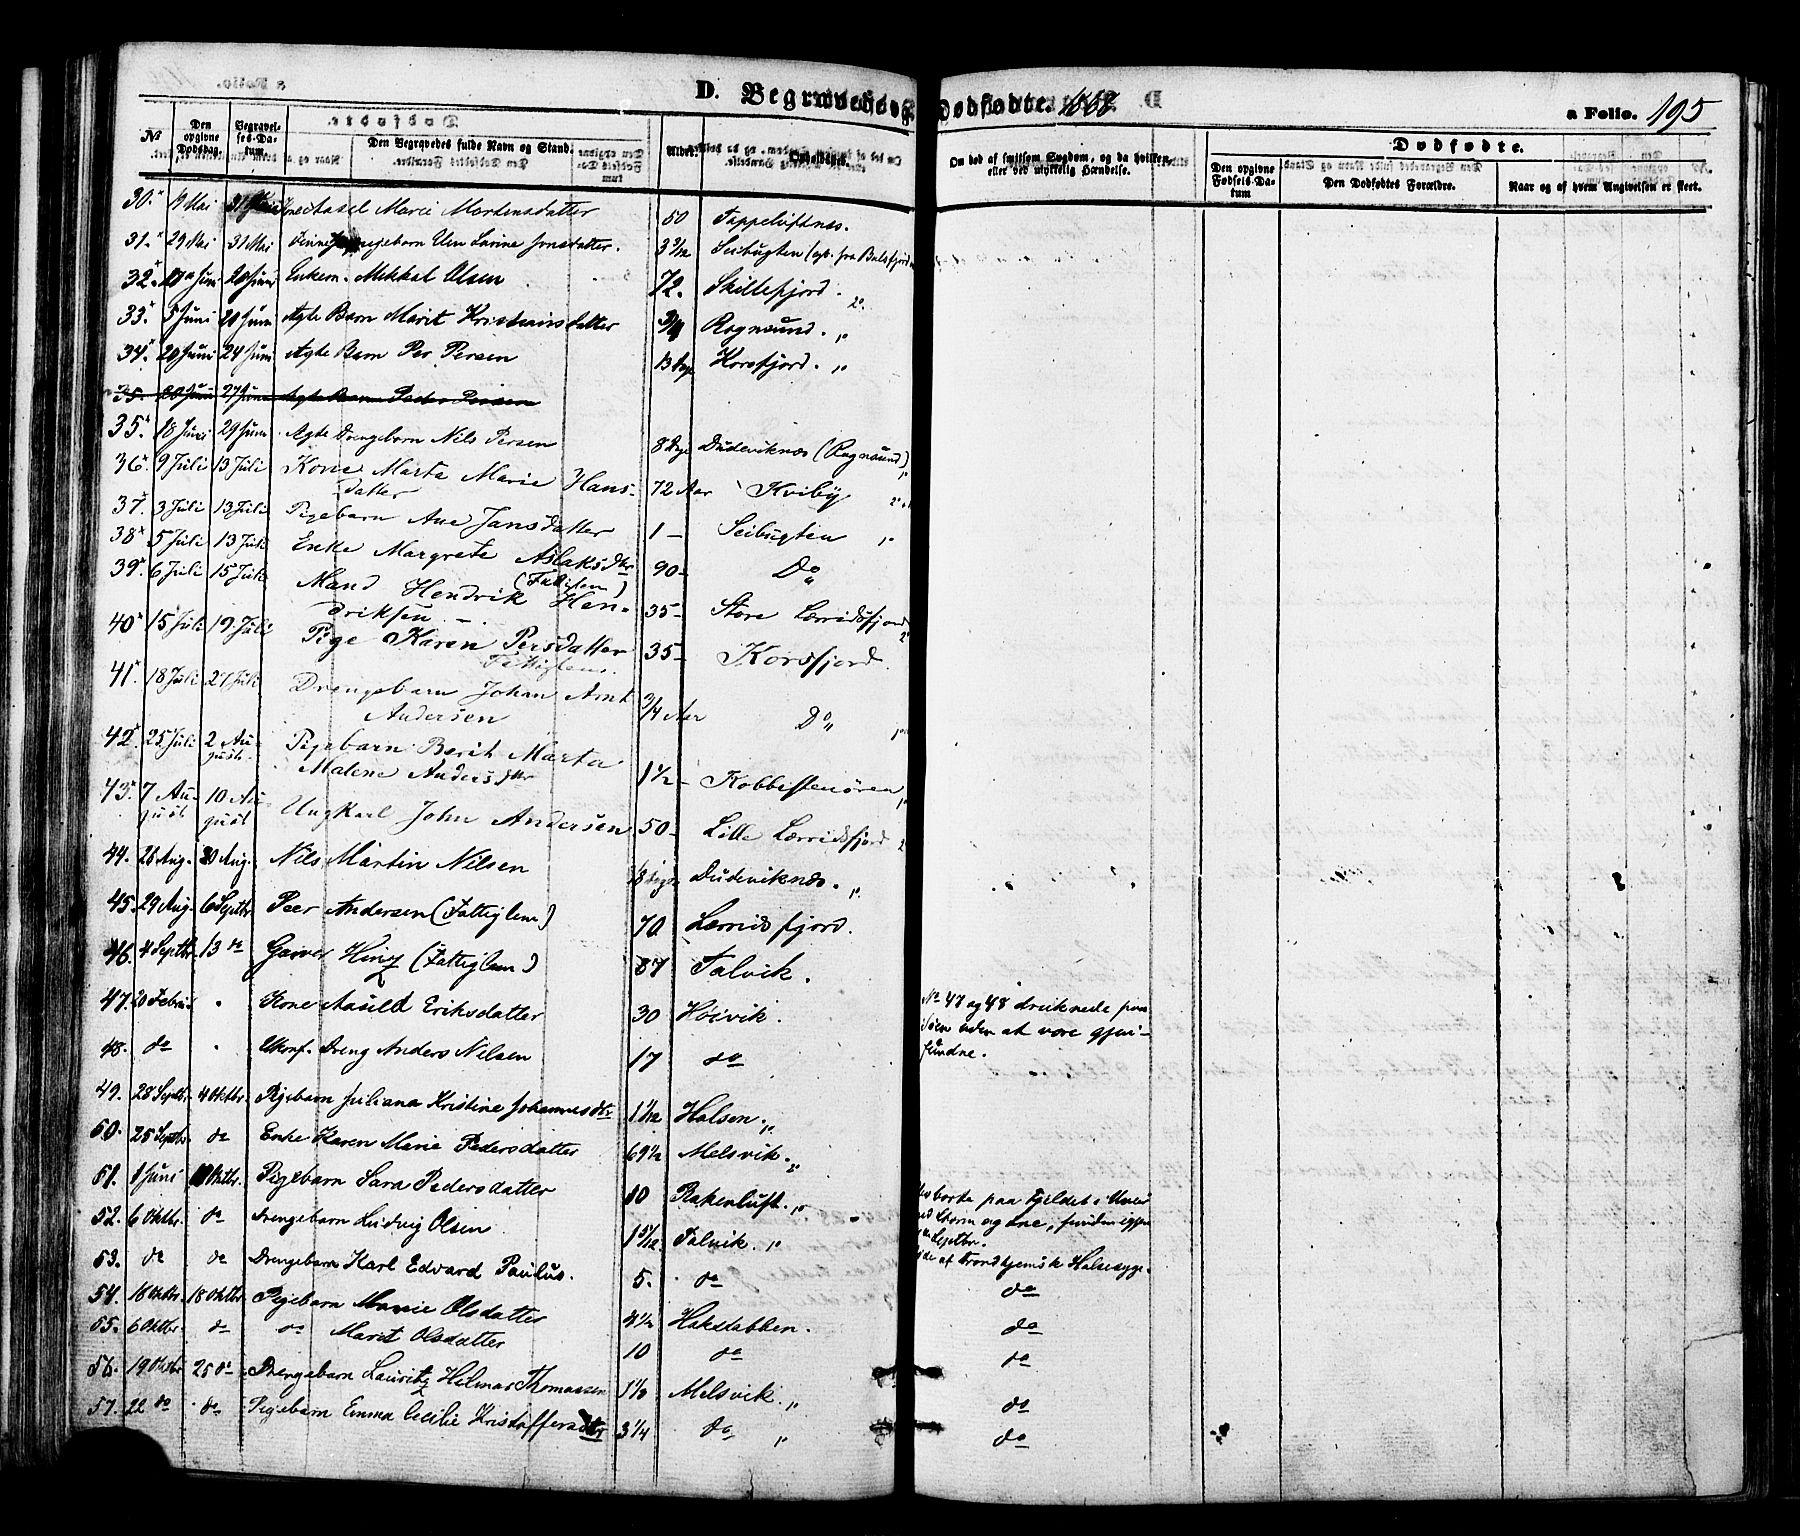 D. Begravede og Dødfødte. 1868
a Folio. 195
No Den opgivne Dødsdag. Begravelses-Datum. Den Begravedes fulde Navn og Stand. Alder. Opholdssted. Om død af smitsom Sygdom, og da hvilken, eller ved ulykkelig Hændelse.
Dødfødte.
Den opgivne Fødsels-Datum Den Dødfødtes Forældre. Naar og af hvem Angivelsen er skeet.
30. 19 Mai 31 Mai Marie Mortensdatter 50 Tappeluftnæs.
31. 29 Mai 31 Mai Larine Jonsdatter. 3 3/12 Seibugten
32. Juni 20 Juni Enkem. Mikkel Olsen 72. Skillefjord. 2"
33. 5 Juni 20 Juni Ægte Barn Marit Kristiansdatter 3/4 Rognsund. 1"
34. 20 Juni 24 Juni Ægte Barn Per Persen 13 Dage Korsfjord. 1"
35. 20 Juni 27 Juni Ægte Barn Peder Persen
35. 18 Juni 29 Juni Ægte Drengebarn Nils Persen 8 Dge Dudeviknæs (Rognsund) 1"
36. 9 Juli 13 Juli Kone Marta Marie Hans-
datter 72 Aar Kviby 2"
37. 3 Juli 13 Juli Pigebarn Ane Jansdatter 1 - Seibugten 1"
38. 5 Juli 13 Juli Enke Margrete Aslaksdtr
(Fattiglem) 90 - Do
39. 6 Juli 15 Juli Mand Hendrik Hen-
driksen 35 - Store Lerridsfjord 2"
40. 15 Juli 19 Juli Pige Karen Persdatter
Fattiglem. 35 - Korsfjord.
41. 18 Juli 27 Juli Drengebarn Johan Arnt
Andersen 3/4 Aar Do 1"
42. 25 Juli 2 Au-
gust. Pigebarn Berit Marta
Malene Andersdtr 1 1/2 - Kobbestenören 1"
43. 7 Au-
gust 10 Au
gust Ungkarl John Andersen 50 - Lille Lerridsfjord 2"
44. 26 Aug. 30 Aug. Nils Martin Nilsen Dudeviknæs. 1"
45. 29 Aug. 6 Septbr Peer Andersen (Fattiglem) 70 Lerridsfjord.
46. 4 Septbr 13 do (Fattiglem) 87 Talvik.
47. 20 Februar " Kone Aasild Eriksdatter 30 Høivik. No 47 og 48 druknede paa
Søen uden at være gjen-
fundne.
48. do " Ukonf. Dreng Anders Nilsen 17 do
49. 28 Septbr. 4 Oktbr. Pigebarn Juliana Kristine Johannesdtr 1 1/12 Halsen. 1"
50. 25 Septbr. do Enke Karen Marie Pedersdatter 69 1/2 Melsvik. 2"
51. 1 Juni Oktbr. Pigebarn Sara Pedersdatter 10 Rakenluft. 1" borte paa Fjeldet i Uveir
Storm og Sne, funden igjen
Septbr.
52. 6 Oktbr. do Drengebarn Ludvig Olsen 1 5/12 Talvik. 1" af Trondhjemsk Halssyge.
53. do do Drengebarn Karl Edvard Paulus. 5. do do
54. 16 Oktbr. 18 Oktbr. Pigebarn Marie Olsdatter 4 1/2 Hakstabben. do
55. 6 Oktbr. do do Marit Olsdatter 10 do do
56. 19 Oktbr 25 do Drengebarn Lauritz Hilmar Thomassen Melsvik. 1" do
57. 22 do do Pigebarn Emma Cecilie Kristoffersdtr 3 1/4 do 1" do